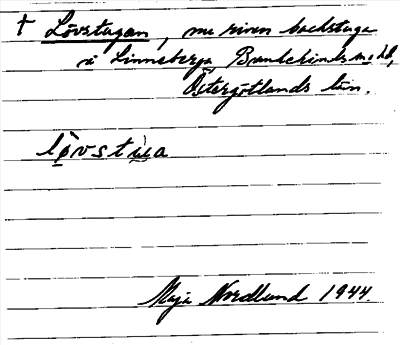 † Lövstugan, nu riven backstuga
å Linneberga Bankekinds sn o hd,
Östergötlands län.
lo̱vstu̱a
Maja Nordlund 1944.